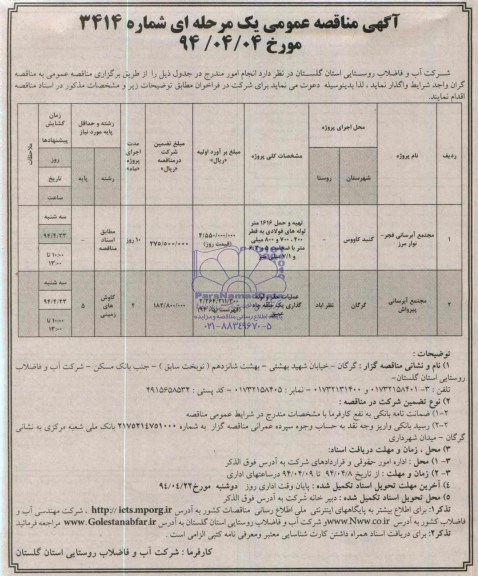 آگهی مناقصه عمومی یک مرحله ای شماره ۳۴۱۴
مورخ ۹۴/۰۴/۰۴
شرکت آب و فاضلاب روستایی استان گلستان در نظر دارد انجام امور مندرج در جدول ذیل را از طریق برگزاری مناقصه عمومی به مناقصه
گران واجد شرایط واگذار نماید ، لذا بدینوسیله دعوت می نماید برای شرکت در فراخوان مطابق توضیحات زیر و مشخصات مذکور در اسناد مناقصه
اقدام نمایند.
ردیف
نام پروژه
محل اجرای پروژه
شهرستان
روستا
مشخصات کلی پروژه
مبلغ بر آورد اولیه «ریال»
مبلغ تضمین شرکت درمناقصه «ریال»
مدت اجرای پروژه «ماه»
رشته و حداقل پایه مورد نیاز
رشته
پایه
زمان گشایش پیشنهادها
روز
تاریخ
ساعت
ملاحظات
۱
مجتمع آبرسانی فجر- نوار مرز
گنبد کاووس
-
تهیه و حمل ۱۶۱۶ متر
لوله های فولادی به قطر
۲۰۰ ، ۷۰۰ و ۸۰۰ میلی
متر با ضخامت
۴/۵۵۰/۰۰۰/۰۰۰
(قیمت روز)
۲۷۵/۵۰۰/۰۰۰
۱۰ روز
مطابق اسناد مناقصه
-
سه شنبه
۹۴/۴/۲۳
۱۰:۰۰ تا ۱۳:۰۰
۲
مجتمع آبرسانی پیرواش
گرگان
نظر آباد
عملیات حفر و لوله
گذاری یک حلقه چاه
عمیق
۲/۲۶۴/۲۱۱/۳۰۰
۱۸۲/۸۰۰/۰۰۰
۴
کاوش های زمینی
۵
سه شنبه
۹۴/۴/۲۳
۱۰:۰۰ تا ۱۳:۰۰
ParsNamadData
۰۲۱-۸۸۳۴۹۶۷۰-۵
توضیحات :
۱) نام و نشانی مناقصه گزار : گرگان – خیابان شهید بهشتی – بهشت شانزدهم ( نوبخت سابق ) – جنب بانک مسکن – شرکت آب و فاضلاب
روستایی استان گلستان-
تلفن : ۳- ۰۱۷۳۲۱۵۸۴۰۱ و ۰۱۷۳۲۱۳۱۴۰۰ – نمابر : ۰۱۷۳۲۱۵۸۴۰۵ – کد پستی : ۴۹۱۵۶۵۸۵۳۴
۲) نوع تضمین شرکت در مناقصه :
۲-۱) ضمانت نامه بانکی به نفع کارفرما با مشخصات مندرج در شرایط عمومی مناقصه
۲-۲) رسید بانکی واریز وجه نقد به حساب وجوه سپرده عمرانی مناقصه گزار به شماره ۲۱۷۵۲۱۴۷۵۱۰۰۰ بانک ملی شعبه مرکزی به نشانی
گرگان – میدان شهرداری
۳) محل ، زمان و مهلت دریافت اسناد:
۳-۱) محل : اداره امور حقوقی و قراردادهای شرکت به آدرس فوق الذکر
۳-۲) زمان و مهلت : از تاریخ ۹۴/۰۴/۸ تا ۹۴/۰۴/۰۹ درساعتهای اداری
۴) آخرین مهلت تحویل اسناد تکمیل شده : پایان وقت اداری روز دوشنبه مورخ ۹۴/۰۴/۲۲
۵) محل تحویل اسناد تکمیل شده : دبیر خانه شرکت به آدرس فوق الذکر
تذکر۱: برای اطلاع بیشتر به پایگاههای اینترنتی ملی اطلاع رسانی مناقصات کشور به آدرس http:// iets.mporg.ir ، شرکت مهندسی آب و
فاضلاب کشور به آدرس www.Nww.co.ir و شرکت آب و فاضلاب روستایی استان گلستان به آدرس www.Golestanabfar.ir مراجعه فرمائید
تذکر۲: برای دریافت اسناد همراه داشتن کارت شناسایی معتبر ومعرفی نامه کتبی الزامی است .
کارفرما : شرکت آب و فاضلاب روستایی استان گلستان